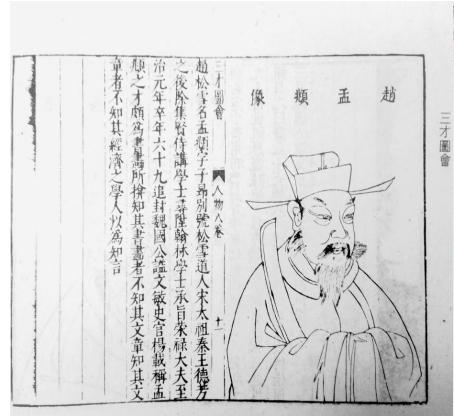 三才圖會
趙孟頫像
三才圖會 人物八卷 十一
趙松雪名孟頫字子昂別號松雪道人宋太祖秦王德芳
之後除集賢侍講學士尋陞翰林學士承旨榮禄大夫至
治元年卒年六十九追封魏國公謚文敏史官楊載稱孟
頫之才頗為書畫所揜知其書畫者不知其文章知其文
章者不知其經濟之學人以為知言